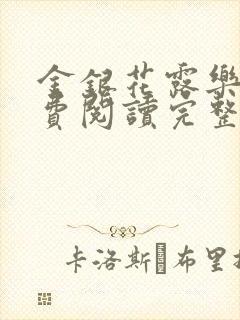 金銀花露樂
費閱讀完整
卡洛斯·布里